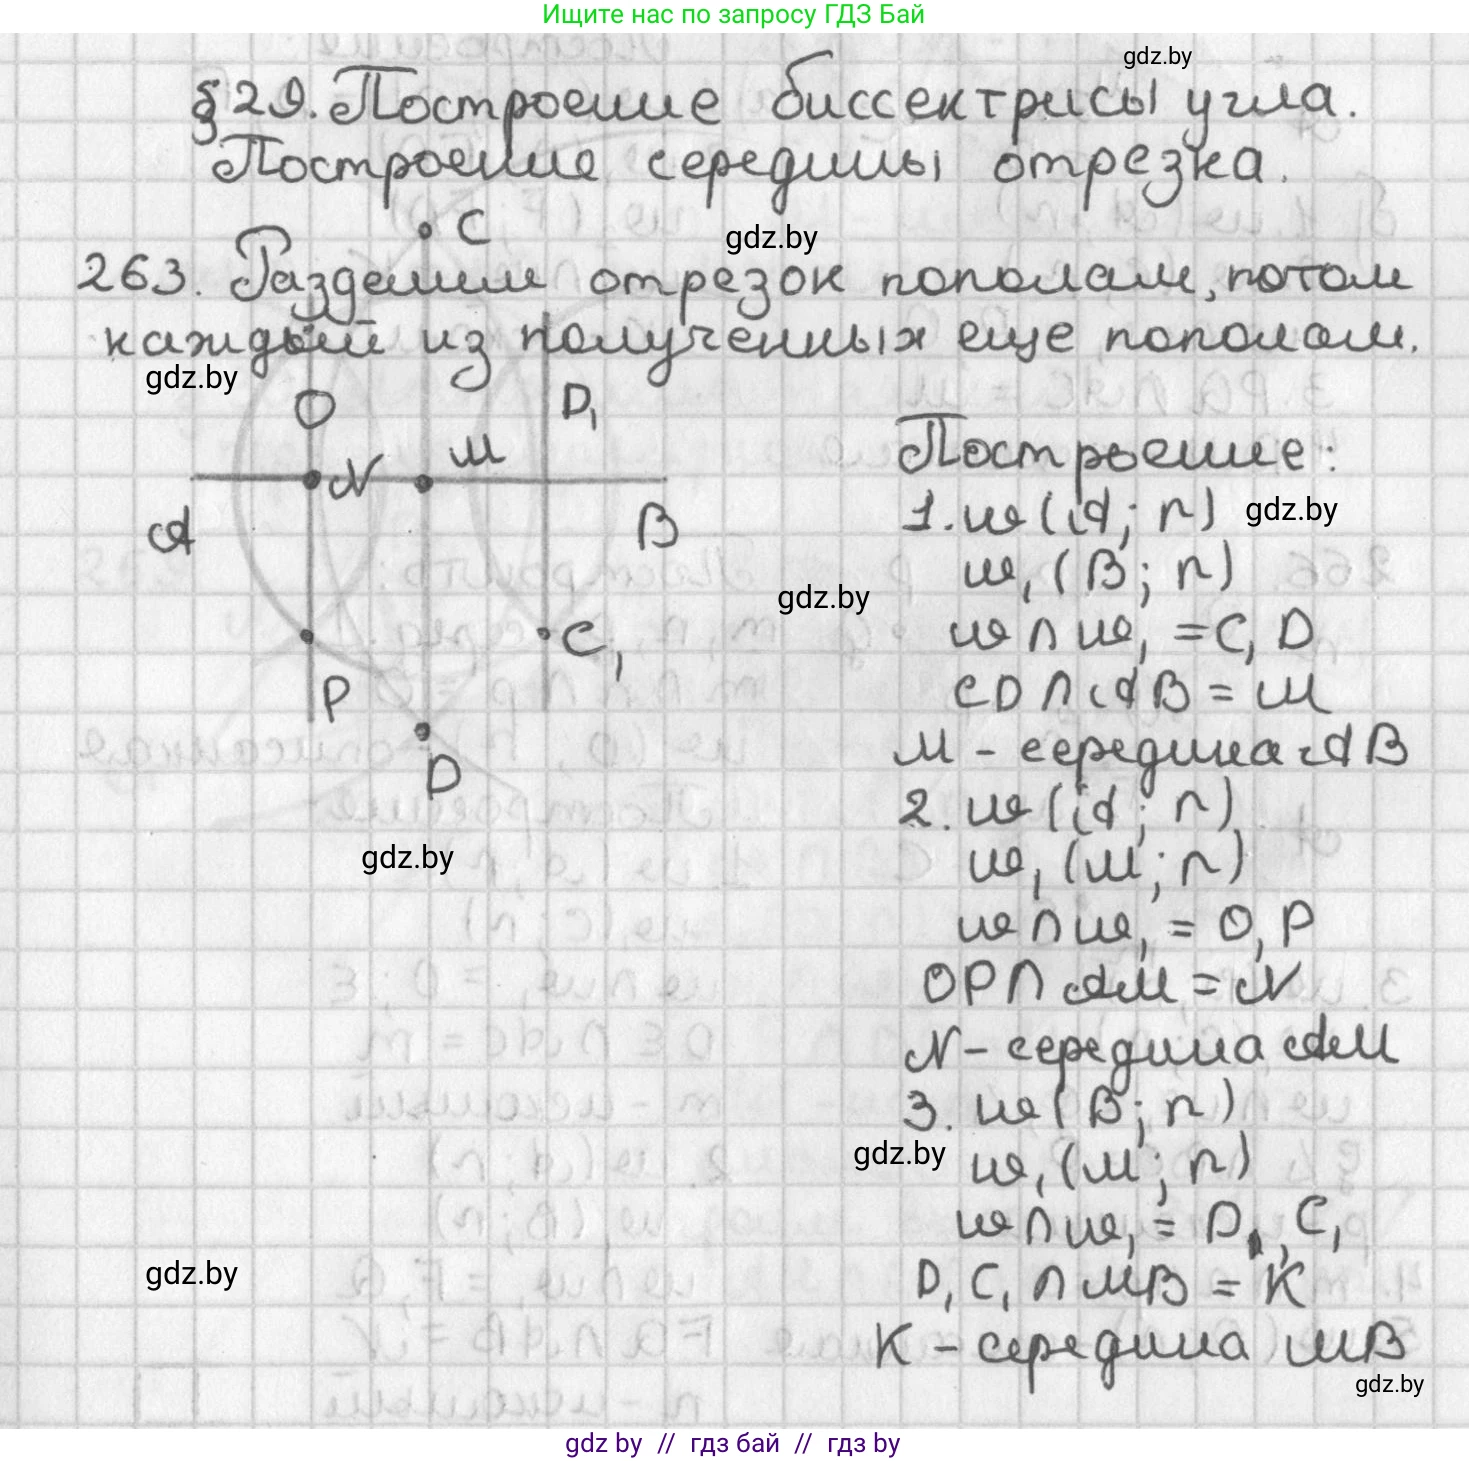 Ищите нас по запросу ГДЗ Бай
gdz.by
§29. Построение биссектрисы угла.
Построение середины отрезка.
C
gdz.by
263. Разделим отрезок пополам, потом
каждый из полученных еще пополам.
gdz.by
O
D₁
N
M
A
B
P
C₁
D
gdz.by
gdz.by
gdz.by
Построение:
1. ω(A; r)
gdz.by
ω₁(B; r)
ω∩ω₁ = C, D
CD∩AB = M
M - середина AB
2. ω(A; r)
ω₁(M; r)
ω∩ω₁ = O, P
OP∩AM = N
N - середина AM
3. ω(B; r)
gdz.by
ω₁(M; r)
ω∩ω₁ = D₁, C₁
D₁C₁∩MB = K
K - середина MB
gdz.by
gdz by // гдз бай // гдз by